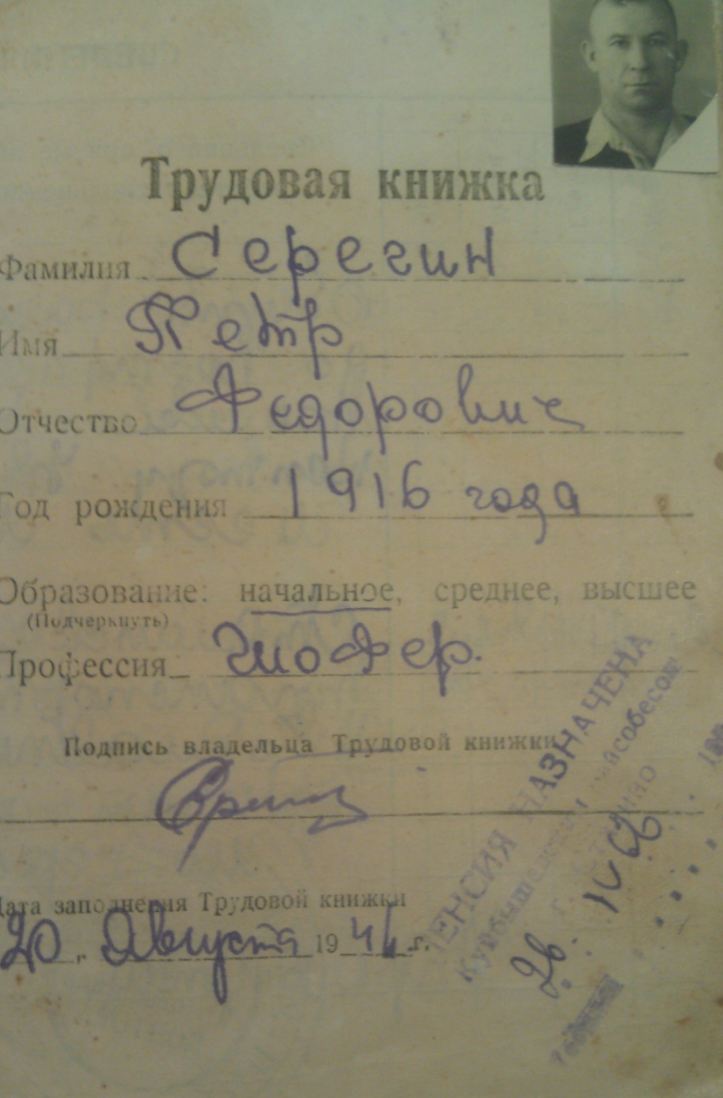 Трудовая книжка
Фамилия Серегин
Имя Петр
Отчество Федорович
Год рождения 1916 года
Образование: начальное, среднее, высшее
(Подчеркнуть)
Профессия шофер.
Подпись владельца Трудовой книжки
Дата заполнения Трудовой книжки
20 Августа 19 г.
ПЕНСИЯ НАЗНАЧЕНА
Куйбышевским райсобесом